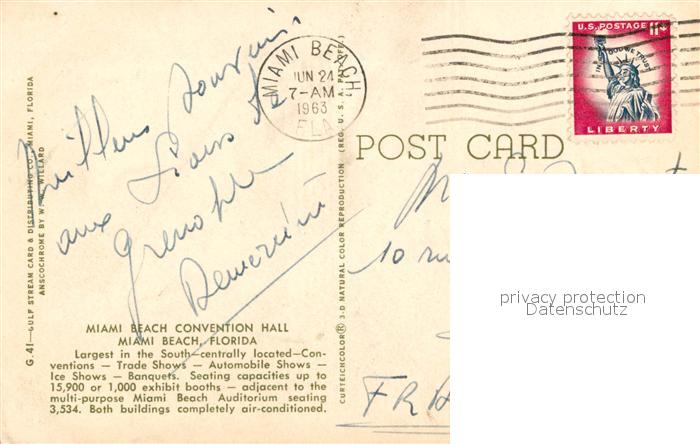 MIAMI BEACH,
JUN 24
7-AM
1963
FLA.
U.S. POSTAGE 11¢
IN GOD WE TRUST
LIBERTY
POST CARD
souvenirs
aux Lions de
Grenoble
10 ru
FRA
privacy protection
Datenschutz
MIAMI BEACH CONVENTION HALL
MIAMI BEACH, FLORIDA
Largest in the South—centrally located—Con-
ventions — Trade Shows — Automobile Shows —
Ice Shows — Banquets. Seating capacities up to
15,900 or 1,000 exhibit booths — adjacent to the
multi-purpose Miami Beach Auditorium seating
3,534. Both buildings completely air-conditioned.
G.41—GULF STREAM CARD & DISTRIBUTING CO., MIAMI, FLORIDA
ANSCOCHROME BY W. M. WILLARD
CURTEICHCOLOR® 3-D NATURAL COLOR REPRODUCTION (REG. U.S.A. PAT. OFF.)